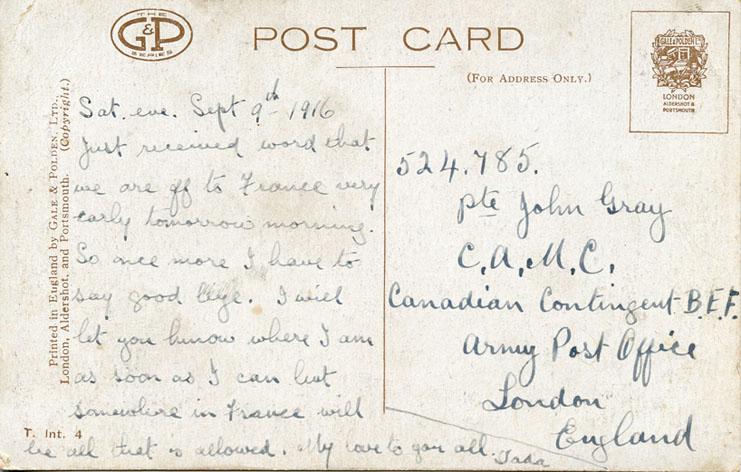 THE
G&P
SERIES
POST CARD
(FOR ADDRESS ONLY.)
GALE & POLDEN LTD
LONDON
ALDERSHOT &
PORTSMOUTH
Printed in England by GALE & POLDEN, LTD.,
London, Aldershot, and Portsmouth. (Copyright.)
Sat. eve. Sept 9th 1916
Just received word that
we are off to France very
early tomorrow morning.
So once more I have to
say good bye. I will
let you know where I am
as soon as I can but
somewhere in France will
be all that is allowed. My love to you all.
524.785.
Pte John Gray
C.A.M.C.
Canadian Contingent B.E.F.
Army Post Office
London
England
T. Int. 4